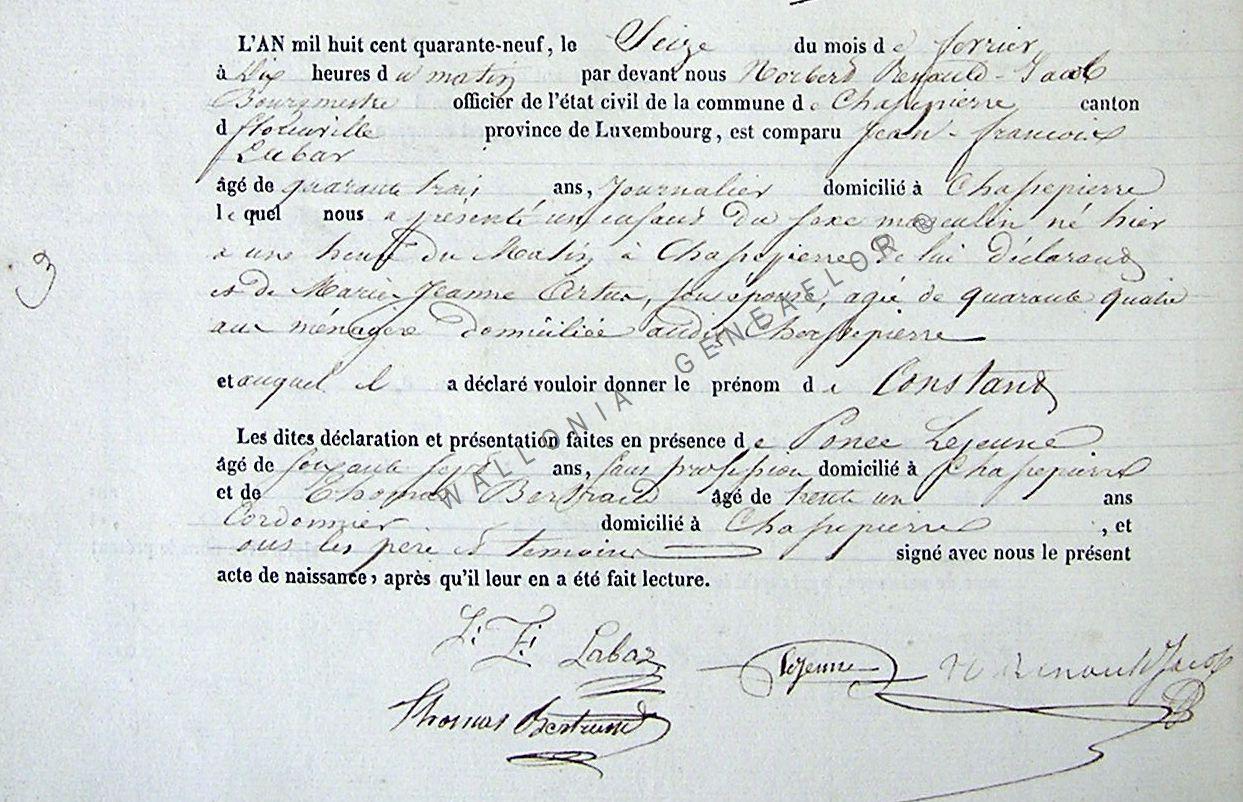 L'AN mil huit cent quarante-neuf, le Seize du mois de fevrier
à Dix heures du matin par devant nous Norbert Renauld-Jacob
Bourgmestre officier de l'état civil de la commune de Chassepierre canton
d florenville province de Luxembourg, est comparu Jean-francois
Labar
âgé de quarante trois ans, Journalier domicilié à Chassepierre
le quel nous a présenté un enfant du sexe masculin né hier
a une heure du Matin à Chassepierre de lui déclarant
et de Marie Jeanne Artus, son épouse, agée de quarante quatre
ans ménagere domiciliée audit Chassepierre
et auquel il a déclaré vouloir donner le prénom de Constant
Les dites déclaration et présentation faites en présence de Ponce Lejeune
âgé de soixante sept ans, sans profession domicilié à Chassepierre
et de Thomas Bertrand âgé de trente un ans
Cordonnier domicilié à Chassepierre, et
ous les père et temoins signé avec nous le présent
acte de naissance, après qu'il leur en a été fait lecture.
3
J. F. Labar
Lejeune
N Renauld Jacob
Thomas Bertrand
WALLONIA GENEAFLOR ®